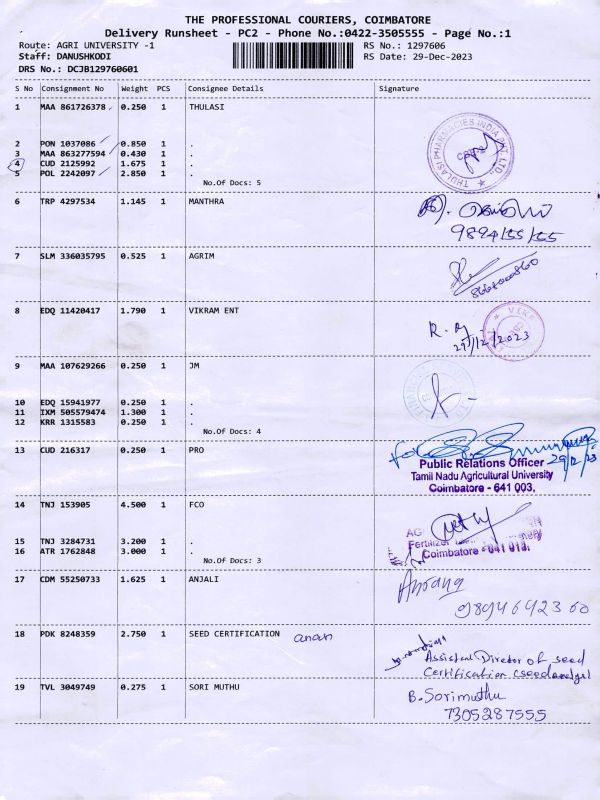 THE PROFESSIONAL COURIERS, COIMBATORE
Delivery Runsheet - PC2 - Phone No.:0422-3505555 - Page No.:1
Route: AGRI UNIVERSITY -1 RS No.: 1297606
Staff: DANUSHKODI RS Date: 29-Dec-2023
DRS No.: DCJB129760601
S No Consignment No Weight PCS Consignee Details Signature
1 MAA 861726378 0.250 1 THULASI
2 PON 1037086 0.850 1 .
3 MAA 863277594 0.430 1 .
4 CUD 2125992 1.675 1 .
5 POL 2242097 2.850 1 .
No.Of Docs: 5
THULASI PHARMACIES INDIA PVT. LTD.,
6 TRP 4297534 1.145 1 MANTHRA
9894/55/55
7 SLM 336035795 0.525 1 AGRIM
8 EDQ 11420417 1.790 1 VIKRAM ENT
29/12/2023
9 MAA 107629266 0.250 1 JM
10 EDQ 15941977 0.250 1 .
11 IXM 505579474 1.300 1 .
12 KRR 1315583 0.250 1 .
No.Of Docs: 4
13 CUD 216317 0.250 1 PRO
29/12/23
Public Relations Officer
Tamil Nadu Agricultural University
Coimbatore - 641 003.
14 TNJ 153905 4.500 1 FCO
15 TNJ 3284731 3.200 1 .
16 ATR 1762848 3.000 1 .
No.Of Docs: 3
Coimbatore - 641 013.
17 CDM 55250733 1.625 1 ANJALI
18 PDK 8248359 2.750 1 SEED CERTIFICATION
Assistant Director of seed
Certification
19 TVL 3049749 0.275 1 SORI MUTHU
B. Sorimuthu
7305287555